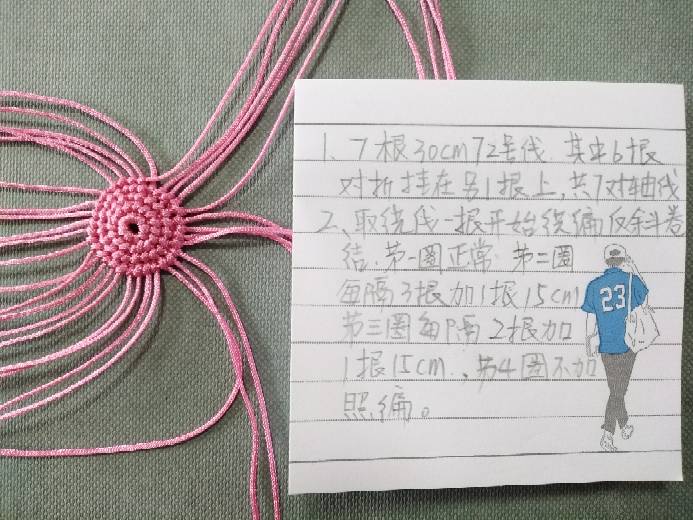 1、7根30cm72号线.其中6根
对折挂在另1根上,共7对轴线
2、取绕线一根开始绕编反斜卷
结.第一圈正常.第二圈
每隔3根加1根15cm
第三圈每隔2根加
1根15cm.,第4圈不加
照编。
23